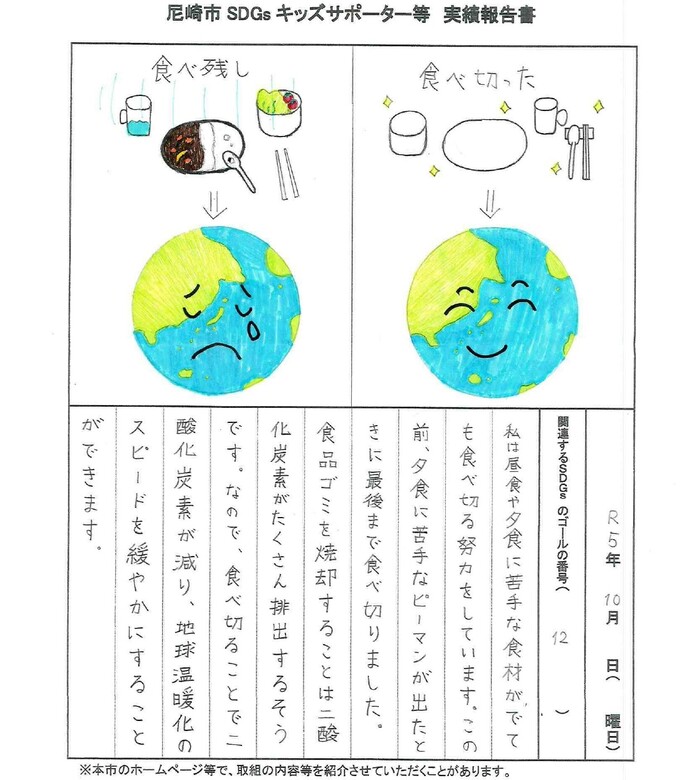 尼崎市 SDGs キッズサポーター等　実績報告書
食べ残し
食べ切った
R5年 10月 日( 曜日)
関連するSDGs のゴールの番号( 12 )
私は昼食や夕食に苦手な食材がでて
も食べ切る努力をしています。この
前、夕食に苦手なピーマンが出たと
きに最後まで食べ切りました。
食品ゴミを焼却することは二酸
化炭素がたくさん排出するそう
です。なので、食べ切ることで二
酸化炭素が減り、地球温暖化の
スピードを緩やかにすること
ができます。
※本市のホームページ等で、取組の内容等を紹介させていただくことがあります。